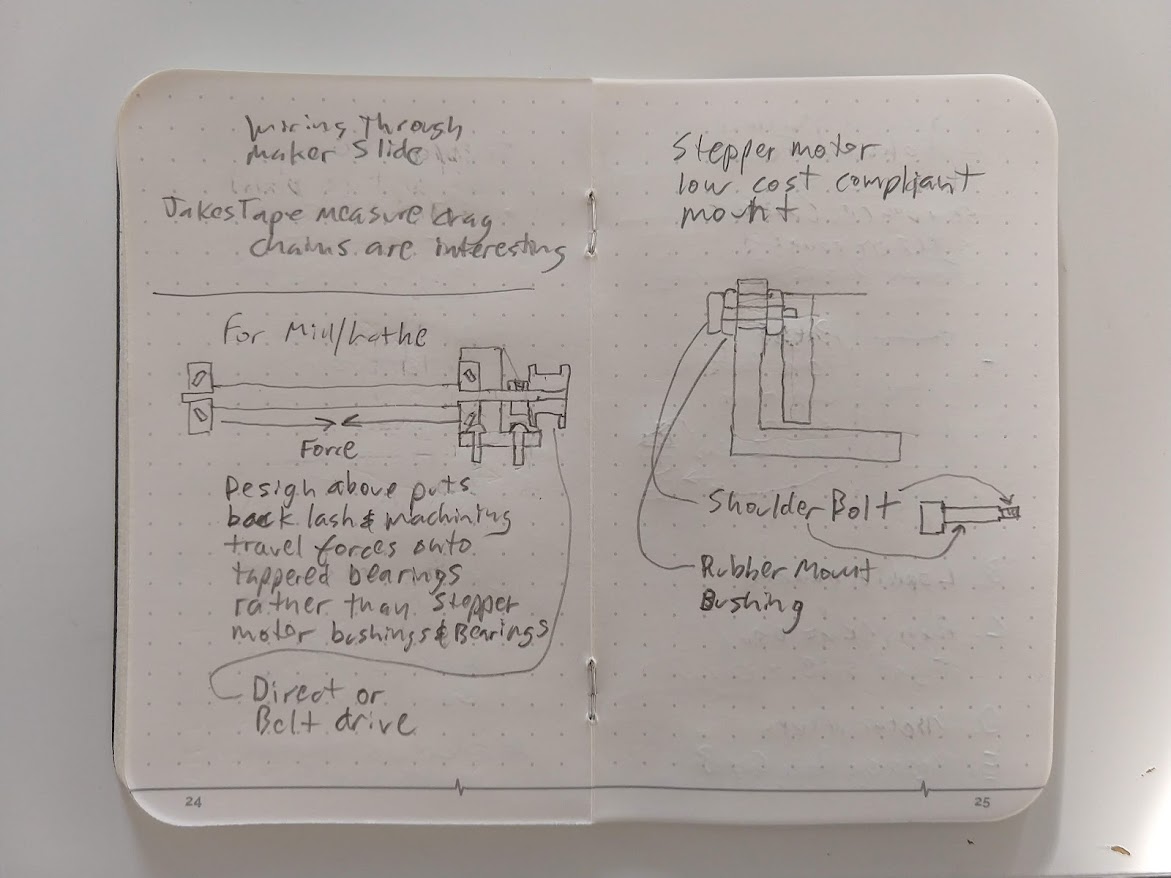 Wiring Through
Maker Slide
Jakes Tape measure drag
chains are interesting
For Mill/Lathe
Force
Design above puts
back lash & machining
travel forces onto
tappered bearings
rather than stepper
motor bushings & Bearings
Direct or
Belt drive
24
Stepper motor
low cost compliant
mount
Shoulder Bolt
Rubber Mount
Bushing
25